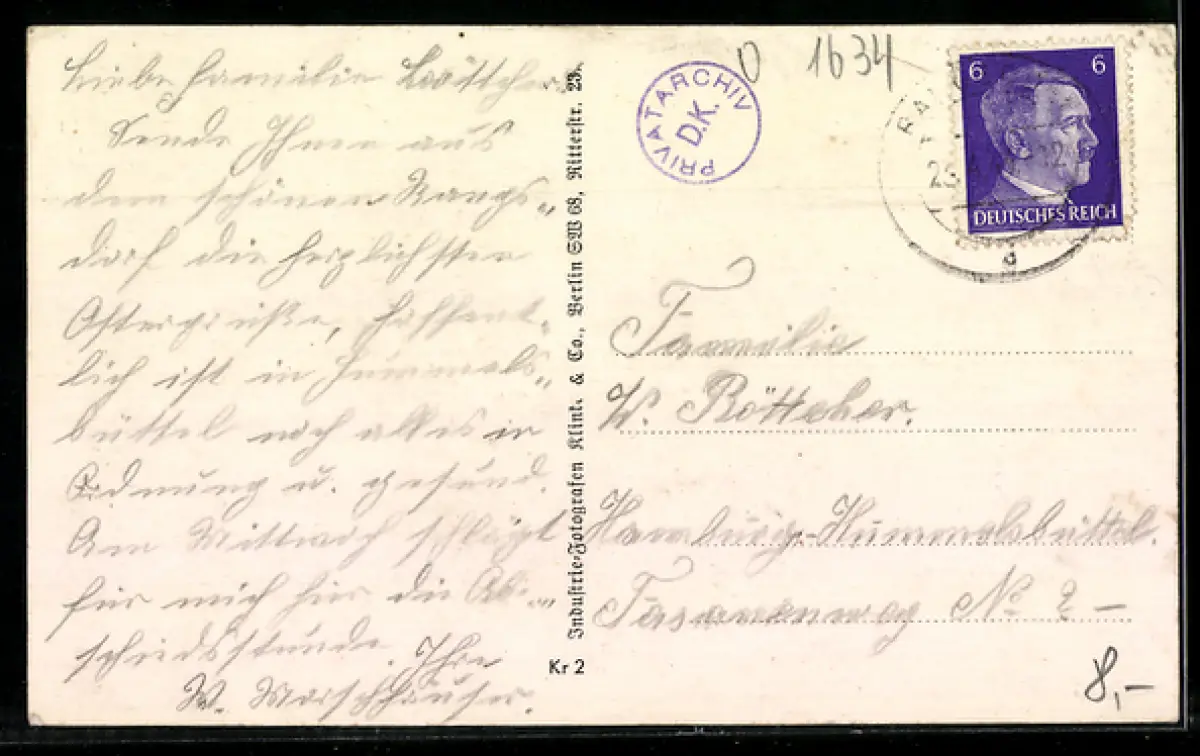 Liebe Familie Böttcher
Sende Ihnen aus
dem schönen Rangs„
dorf die herzlichsten
Ostergrüße, hoffent-
lich ist in Hummels„
büttel noch alles in
Ordnung u. gesund.
Am Mittwoch schlägt
für mich hier die Ab-„
schiedsstunde. Ihr
W.
Industrie-Fotografen Klink. & Co., Berlin SW 68, Ritterstr. 23.
Kr 2
PRIVATARCHIV
D.K.
1634
6 6
DEUTSCHES REICH
Familie
W. Böttcher.
Hamburg-Hummelsbüttel.
Fasanenweg No 2 –
8,-